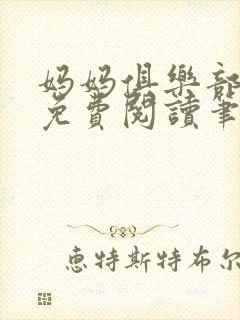 妈妈俱樂部
免費閱讀筆
恵特斯特布尔